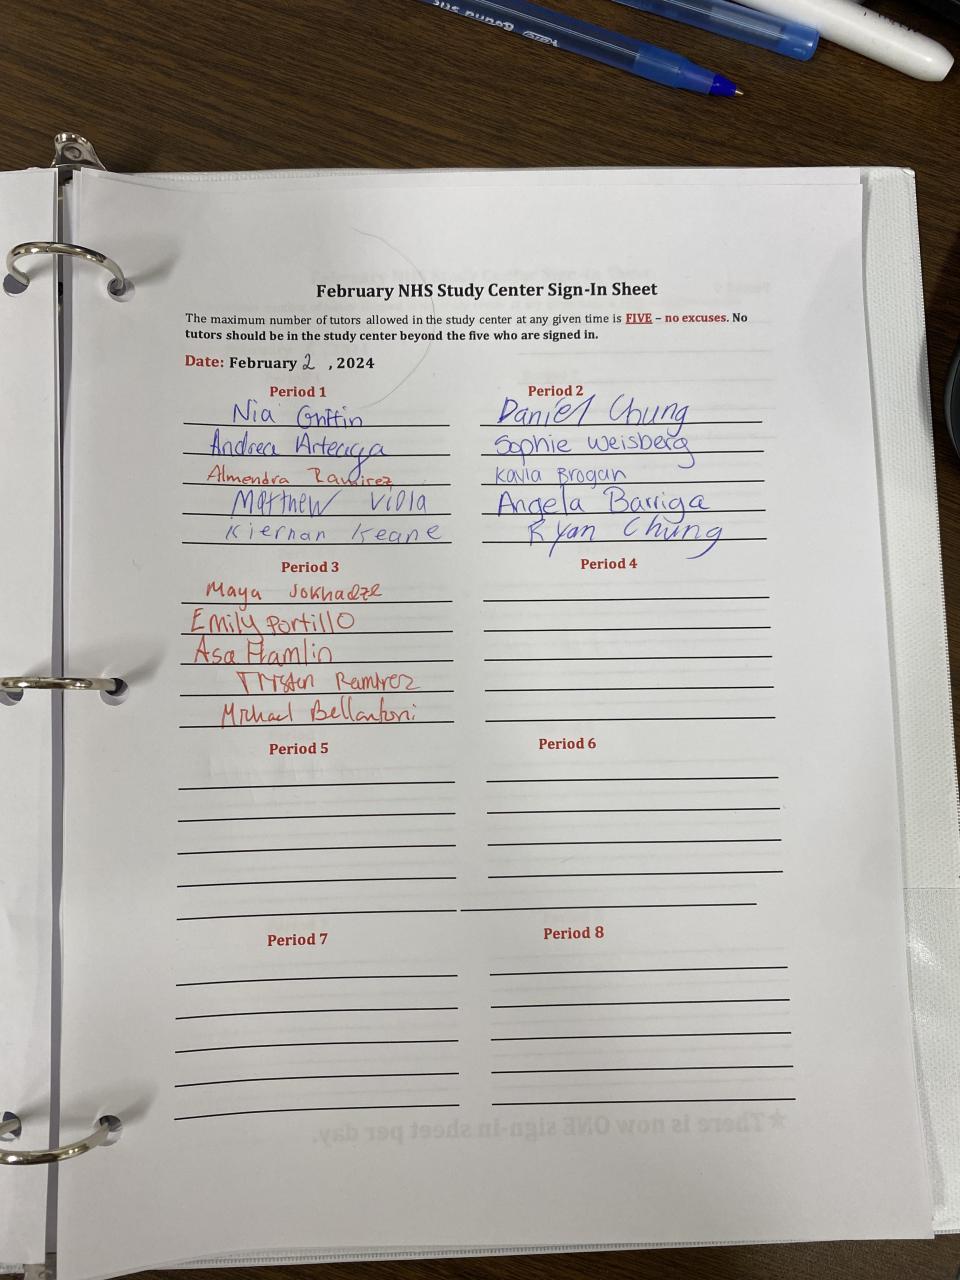 February NHS Study Center Sign-In Sheet
The maximum number of tutors allowed in the study center at any given time is FIVE – no excuses. No
tutors should be in the study center beyond the five who are signed in.
Date: February 2 , 2024
Period 1
Nia Griffin
Andrea Arteaga
Almendra Ramirez
Matthew Viola
Kiernan Keane
Period 2
Daniel Chung
Sophie Weisberg
Kayla Brogan
Angela Barriga
Ryan Chung
Period 3
Maya Jokhadze
Emily Portillo
Asa Hamlin
Trysten Ramirez
Michael Bellantoni
Period 4
Period 5
Period 6
Period 7
Period 8
★There is now ONE sign-in sheet per day.